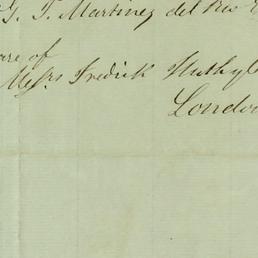 G. T. Martinez del Rio
care of
Messrs Fredick Huth &
London